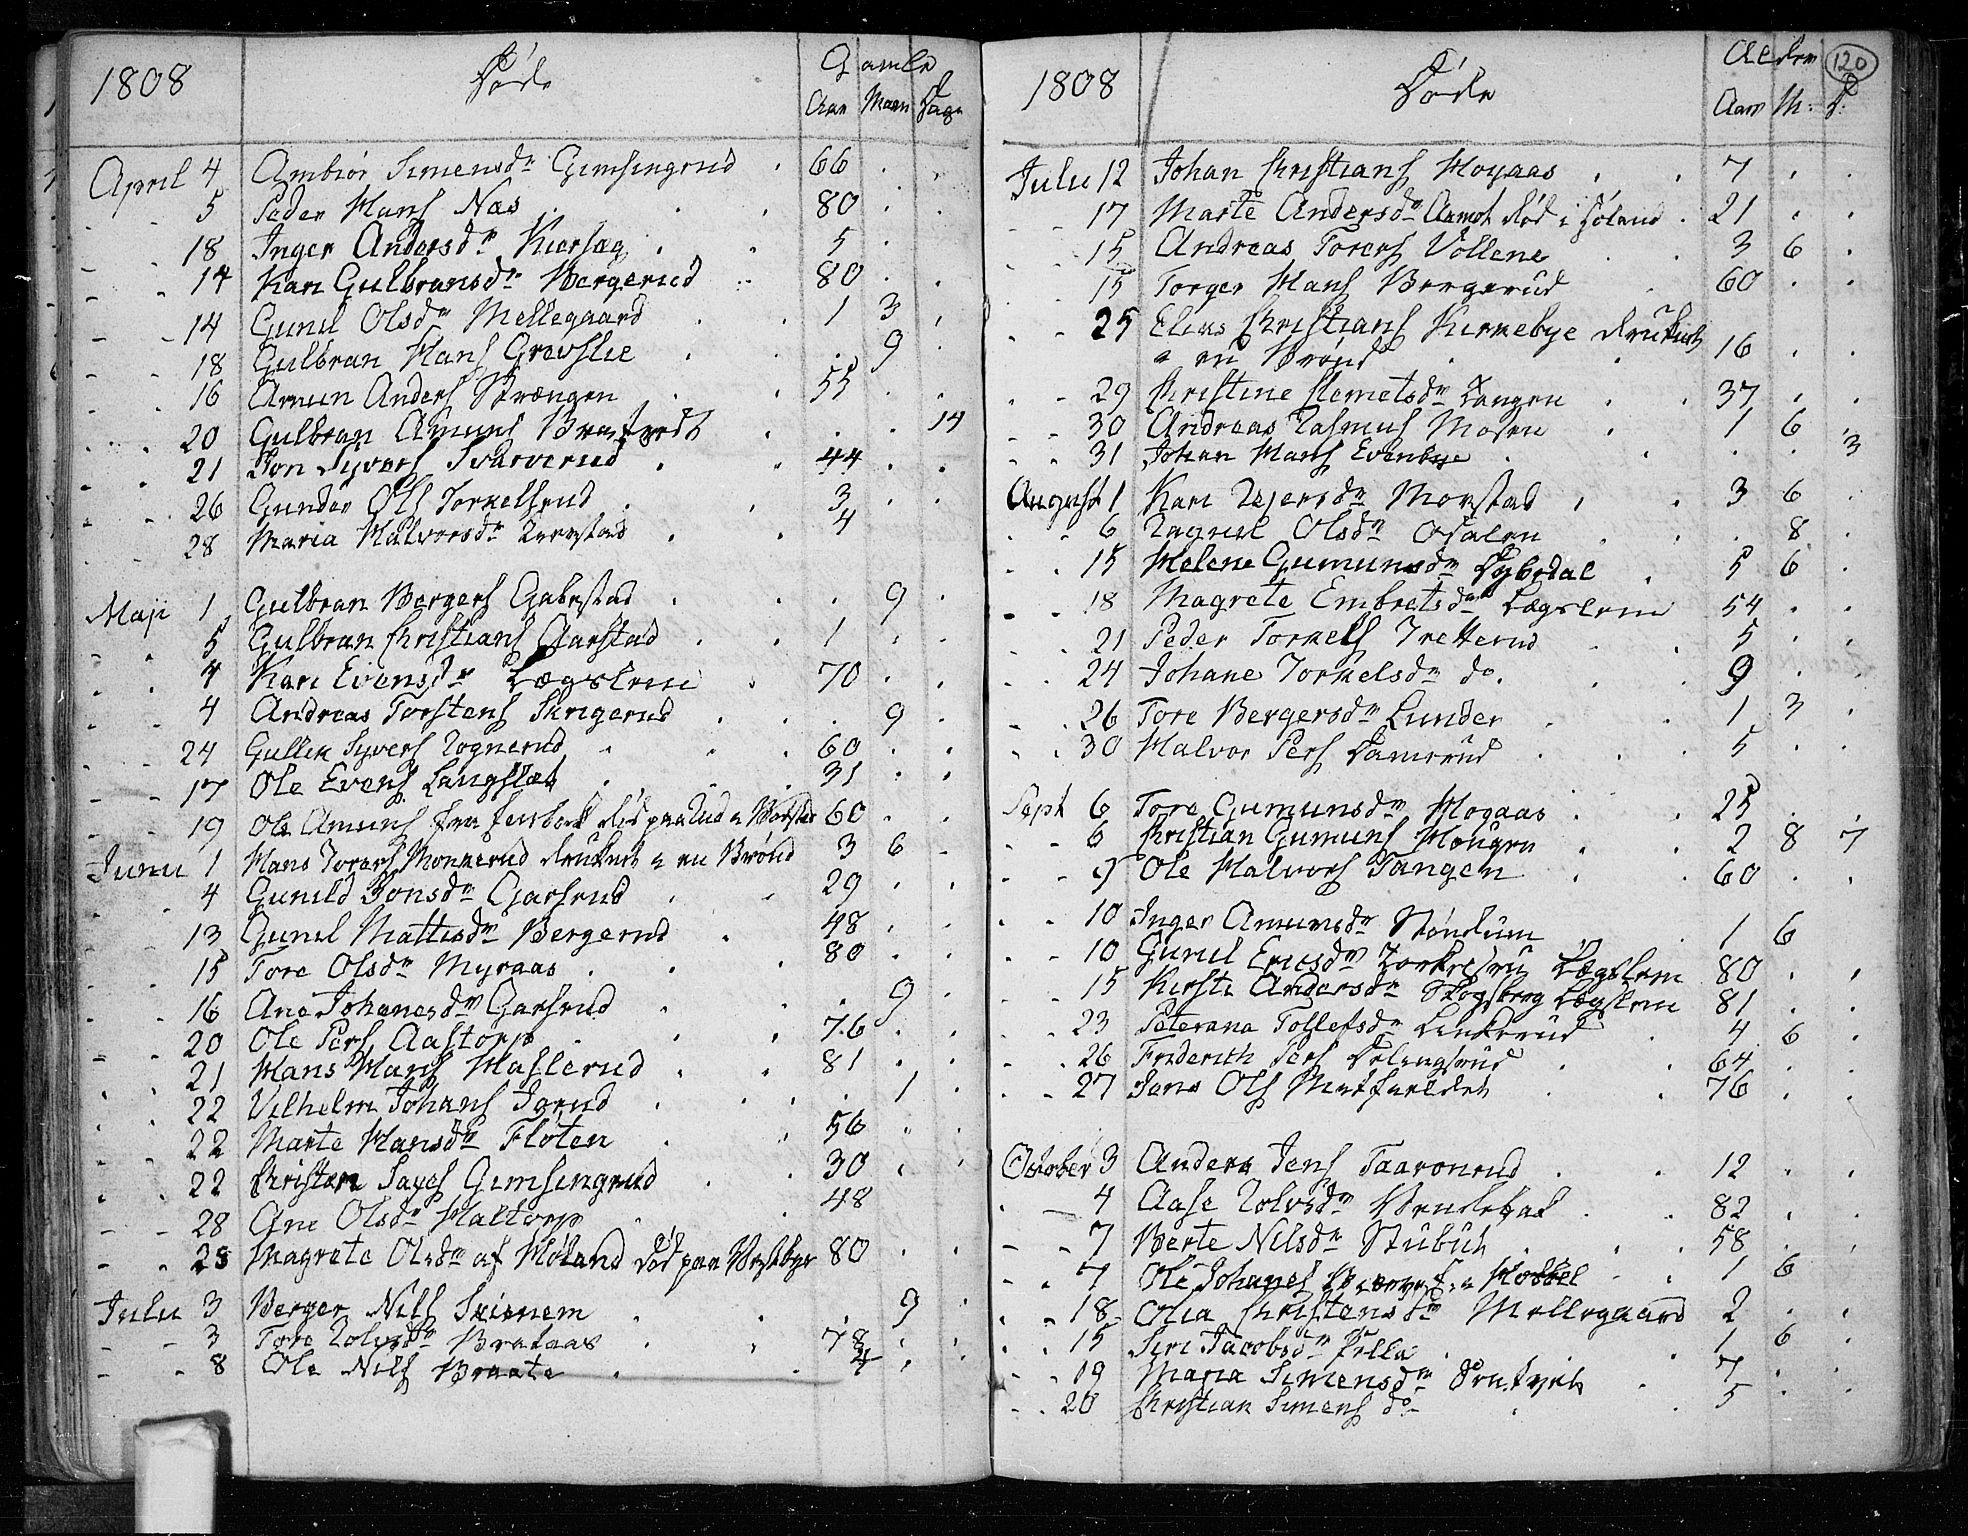 1808 Døde Gamle
Aar Maan Dage
April 4 Ambiør Simensdr Gimsingrud 66
5 Peder Hans Næs 80
18 Inger Andersdr Kiersæg 5
14 Kari Gulbransdr Bergerud 80
14 Gunil Olsdr Mellegaard 1 3
18 Gulbran Hans Grovslie 9
16 Amun Anders Strængen 55
20 Gulbran Amuns 14
21 Jon Syvers Svarverud 44
26 Gunder Ols Torkelsrud 3
28 Maria Halvorsdr 4
Maji 1 Gulbran Bergers Gabestad 9
5 Gulbran Christians Aarstad 1
4 Kari Evensdr Lægslem 70
4 Andreas Torstens Skrigerud 9
24 Gullik Syvers Rognerud 60
17 Ole Evens Langslæt 31
19 Ole Amuns fra død paa 60
Junii 1 Hans Torers Monkerud druknet i en Brønd 3 6
4 Gunild Jonsdr Garsrud 29
13 Gunil Mattisdr Bergerud 48
15 Tore Olsdr Myraas 80
16 Ane Johanesdr Garsrud 9
20 Ole Pers Aastorp 76
21 Hans Hans Haslerud 81
22 Vilhelm Johans Igrud 1
22 Marte Hansdr Fløten 56
22 Christen Gimsingrud 30
28 Ane Olsdr Haltorp 48
28 Magrete Olsdr af Høland død paa Vestbye 80
Julii 3 Berger Nils Skienem 9
3 Tore Rolvsdr Brataas 78
8 Ole Nils Braate 4
1808 Døde Alder 120
Aar M: D:
Julii 12 Johan Christians Mogaas 7
17 Marte Andersdr Aamot død i Høland 21
15 Andreas Torers Vollene 3 6
15 Torger Hans Bergerud 60
25 Elias Christians Kirkebye druknet
i en Brønd 16
29 Christine Clemetsdr Langen 37
30 Andreas Rasmus Mosen 1 6
31 Johan Hans Evenbye 3
August 1 Kari Rejersdr Morstad 3 6
6 Ragnil Olsdr Osalen 8
15 Helene Gumunsdr Dybedal 5 6
18 Magrete Embretsdr Lægslem 54
21 Peder Torkels Tretterud 5
24 Johane Torkelsdr do. 9
26 Tore Bergersdr Lunder 1 3
30 Halvor Pers Damrud 5
Sept 6 Tore Gumunsdr Mogaas 25
6 Christian Gumuns Hougen 2 8 7
9 Ole Halvors Tangen 60
10 Inger Amunsdr Støndum 1 6
10 Gunil Ericsdr Lægslem 80
15 Kirsti Andersdr Skogsberg Lægslem 81
23 Peterana Tollefsdr Linkerud 4 6
26 Friderich Pers 64
27 Jens Ols 76
October 3 Anders Jens Taaronrud 12
4 Aase Rolvsdr 82
7 Berte Nilsdr Stubuh 58
7 Ole Johanes Hobbel 1 6
18 Olia Christensdr Mellegaard 2
15 Siri Jacobsdr Filla 1 6
19 Maria Simensdr 7
20 Christian Simens do 5